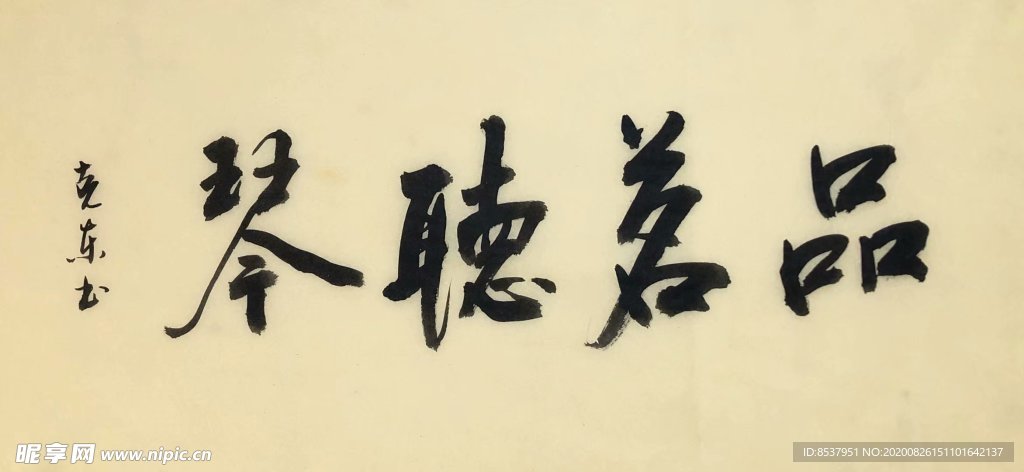 品茗聽琴
克东书
昵享网 www.nipic.cn
ID:8537951 NO:20200826151101642137